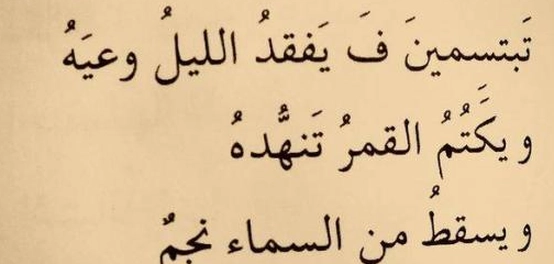 تَبتسمينَ فَ يَفقدُ الليلُ وعيَهُ
و يكَّتُمُ القمرُ تَنهُّدهُ
و يسقطُ من السماء نجمٌ